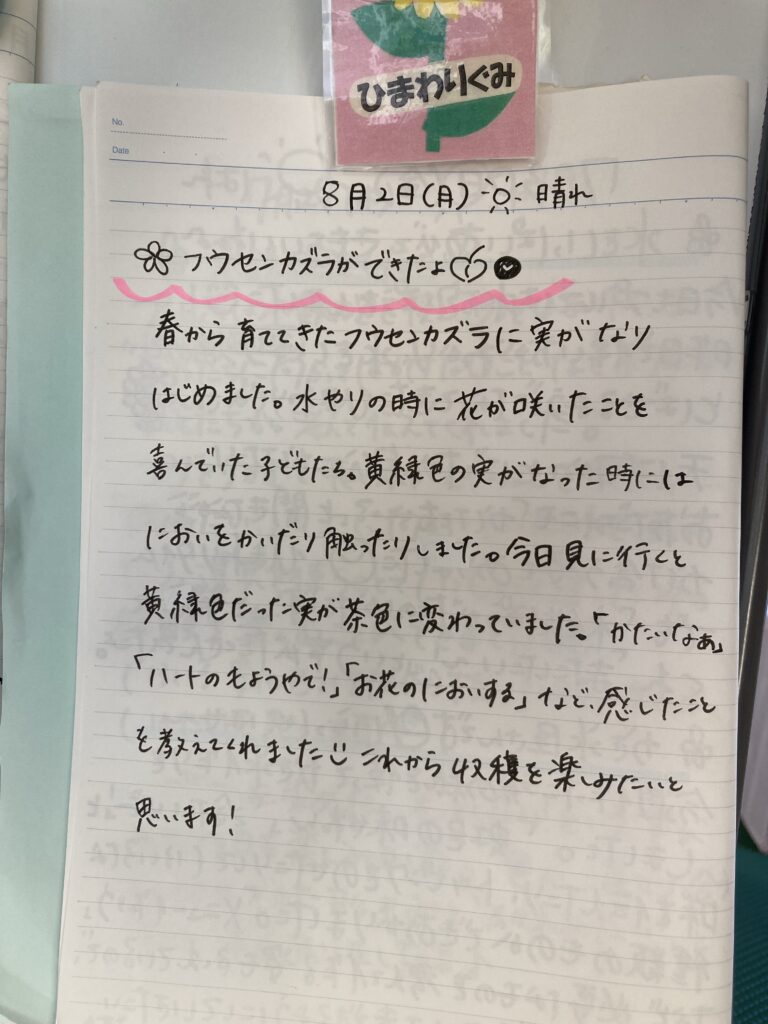 ひまわりぐみ
No.
Date
8月2日(月) 晴れ
フウセンカズラができたよ
春から育ててきたフウセンカズラに実がなり
はじめました。水やりの時に花が咲いたことを
喜んでいた子どもたち。黄緑色の実がなった時には
においをかいだり触ったりしました。今日見に行くと
黄緑色だった実が茶色に変わっていました。「かたいなぁ」
「ハートのもようやで!」「お花のにおいする」など、感じたこと
を教えてくれました これから収穫を楽しみたいと
思います!